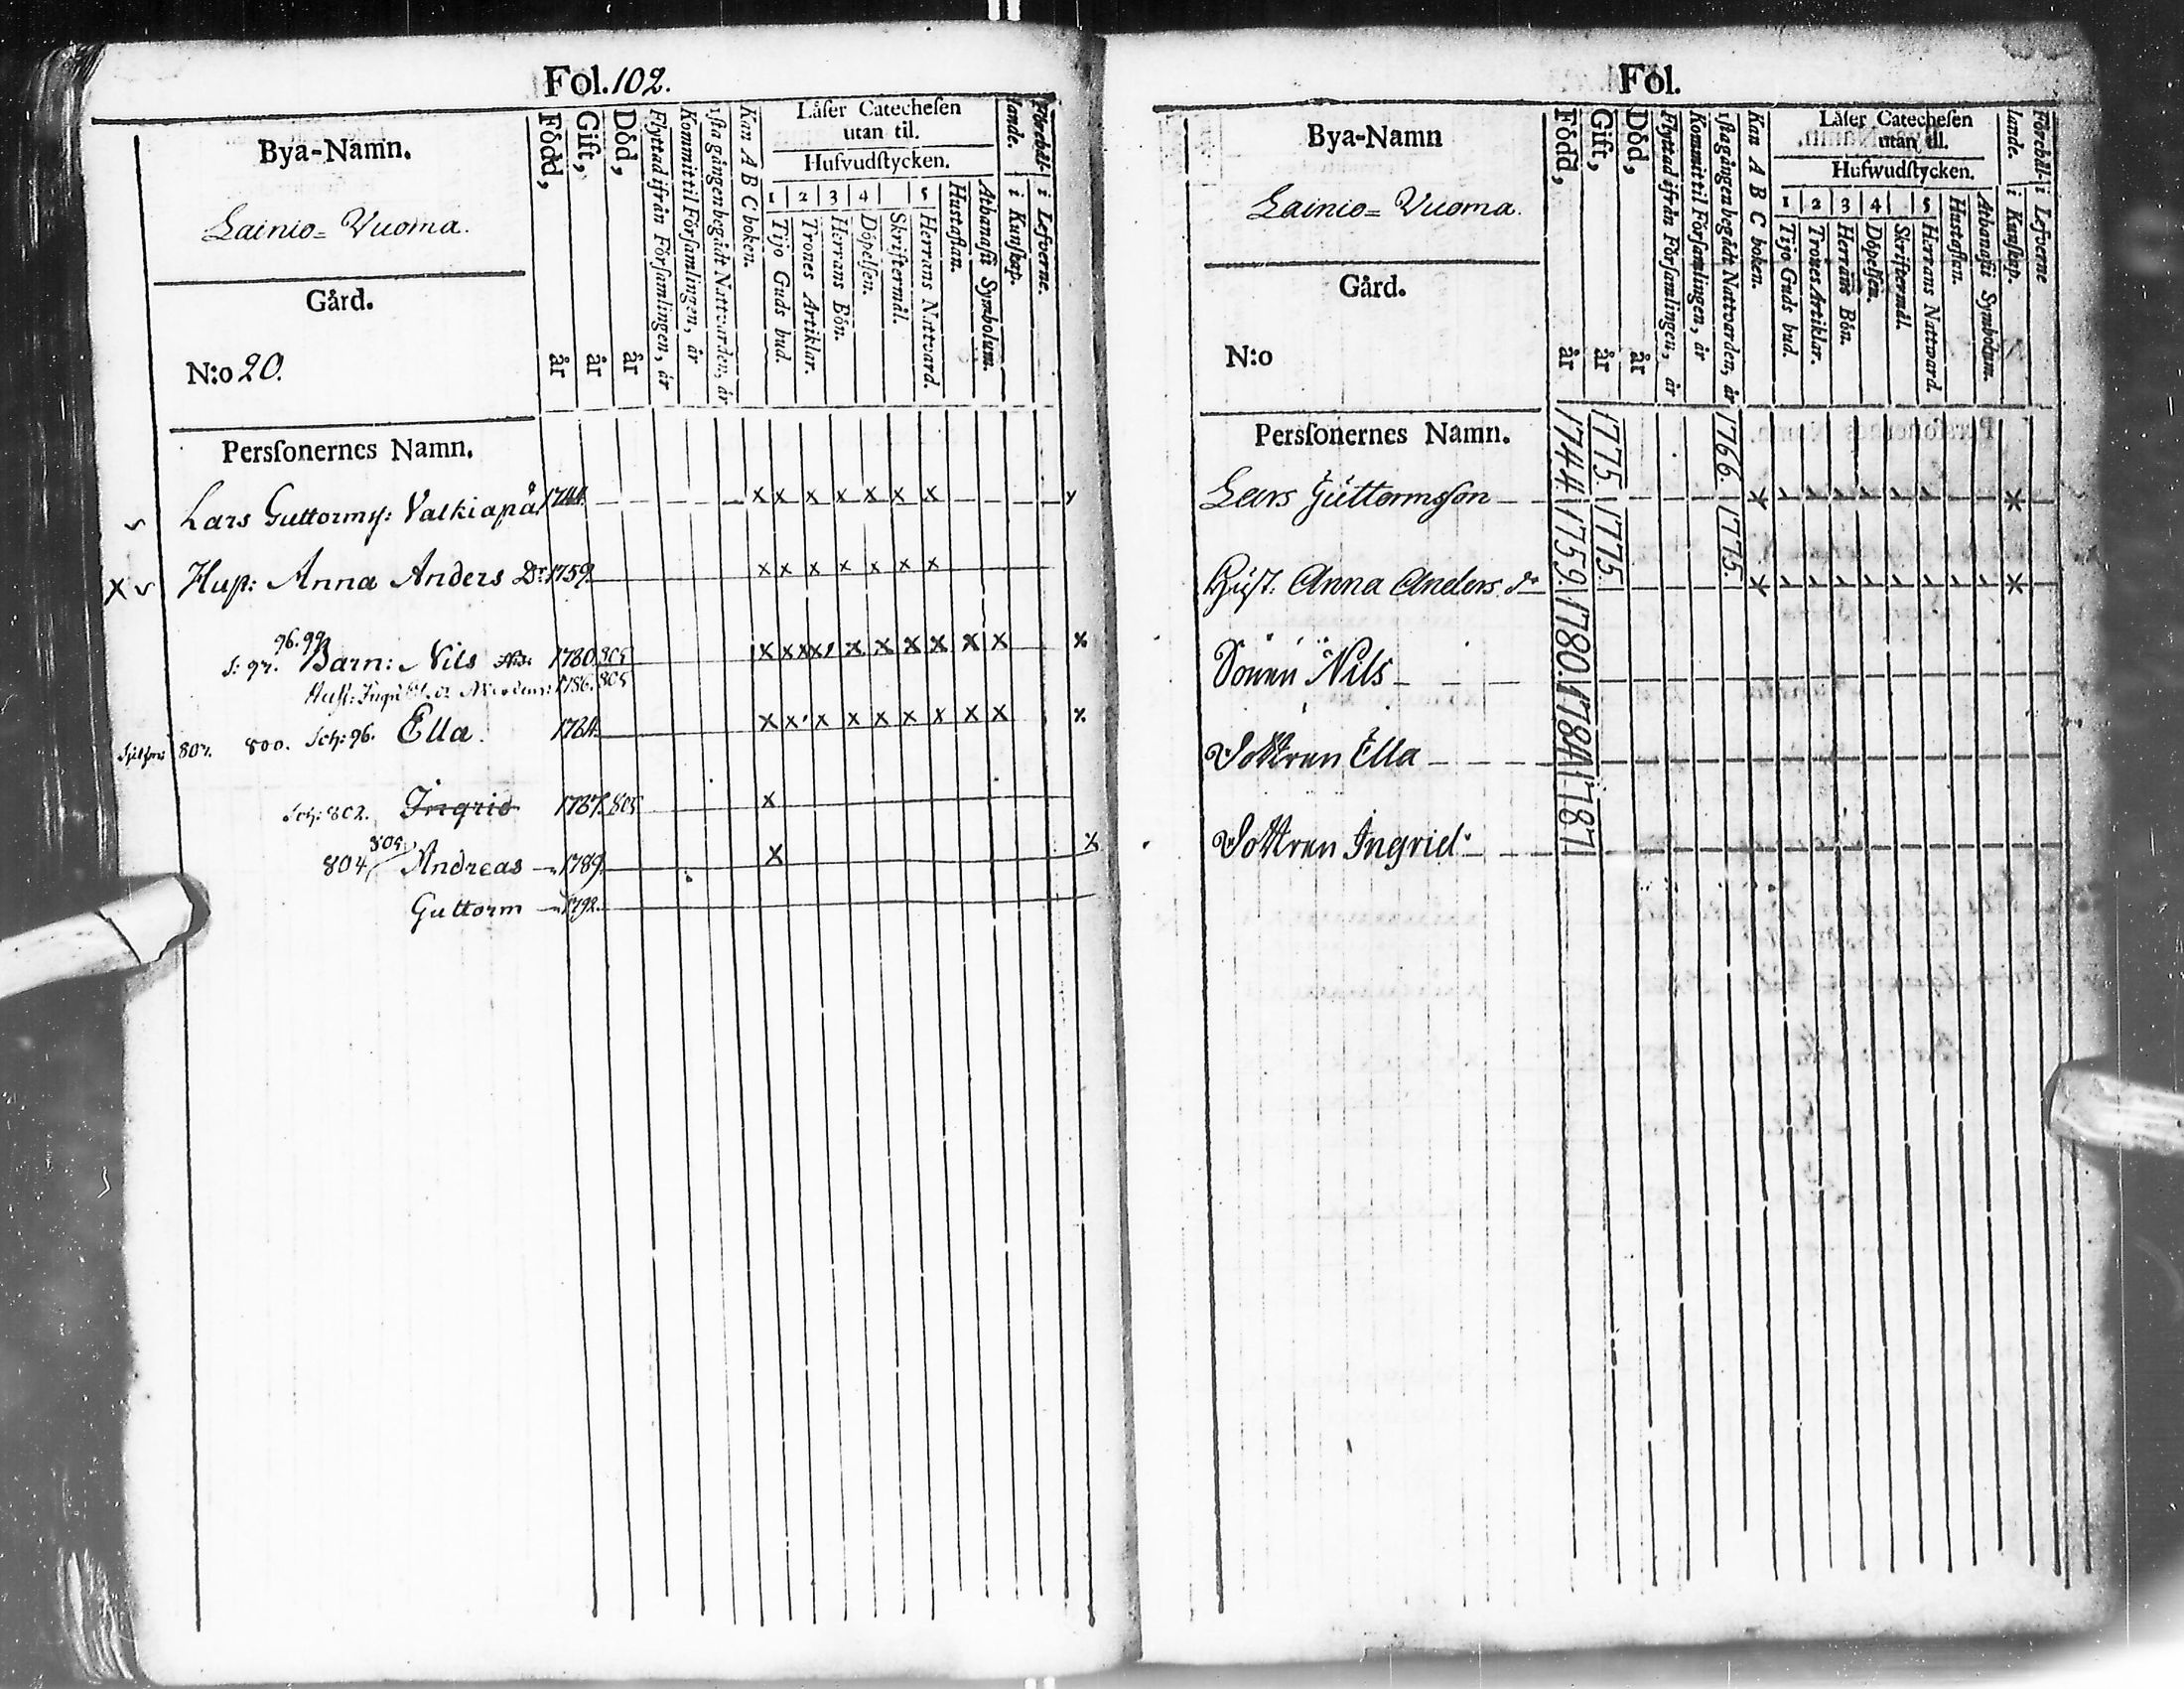 Fol. 102.
Bya-Namn.
Lainio= Vuoma.
Gård.
N:o 20.
Perſonernes Namn.
Född, år
Gift, år
Död, år
Flyttad ifrån Förſamlingen, år
Kommit til Förſamlingen, år
1ſta gången begådt Nattvarden, år
Kan A B C boken.
Läſer Catecheſen
utan til.
Hufvudſtycken.
1 2 3 4 5
Tijo Guds bud.
Trones Artiklar.
Herrans Bön.
Döpelſen.
Skriftermål.
Herrans Nattvard.
Huſtaflan.
Athanaſii Symbolum.
Förehål-
lande.
i Kunſkap.
i Lefverne.
Lars Guttormſ: Valkiapä 1744. x x x x x x x
x Huſt: Anna Anders Dr 1759. x x x x x x x
96. 99.
S: 97. Barn: Nils 1780. 805
1786. 805
807. 800. Sch: 96. Ella. 1784.
Sch: 802. Ingrid 1787. 805 x
805.
804 Andreas 1789. x x
Guttorm 1792.
Fol.
Bya-Namn
Lainio= Vuoma.
Gård.
N:o
Perſonernes Namn.
Född, år
Gift, år
Död, år
Flyttad ifrån Förſamlingen, år
Kommit til Förſamlingen, år
1ſta gången begådt Nattvarden, år
Kan A B C boken.
Läſer Catecheſen
utan til.
Hufwudſtycken.
1 2 3 4 5
Tijo Guds bud.
Trones Artiklar.
Herrans Bön.
Döpelſen.
Skriftermål.
Herrans Nattward.
Huſtaflan.
Athanaſii Symbolum.
Förehål-
lande.
i Kunſkap.
i Lefverne
Lars Guttormsſon 1744 1775 1766.
Huſt: Anna Anders dr 1759. 1775. 1775.
Sonen Nils 1780.
Dottren Ella 1784
Dottren Ingrid 1787